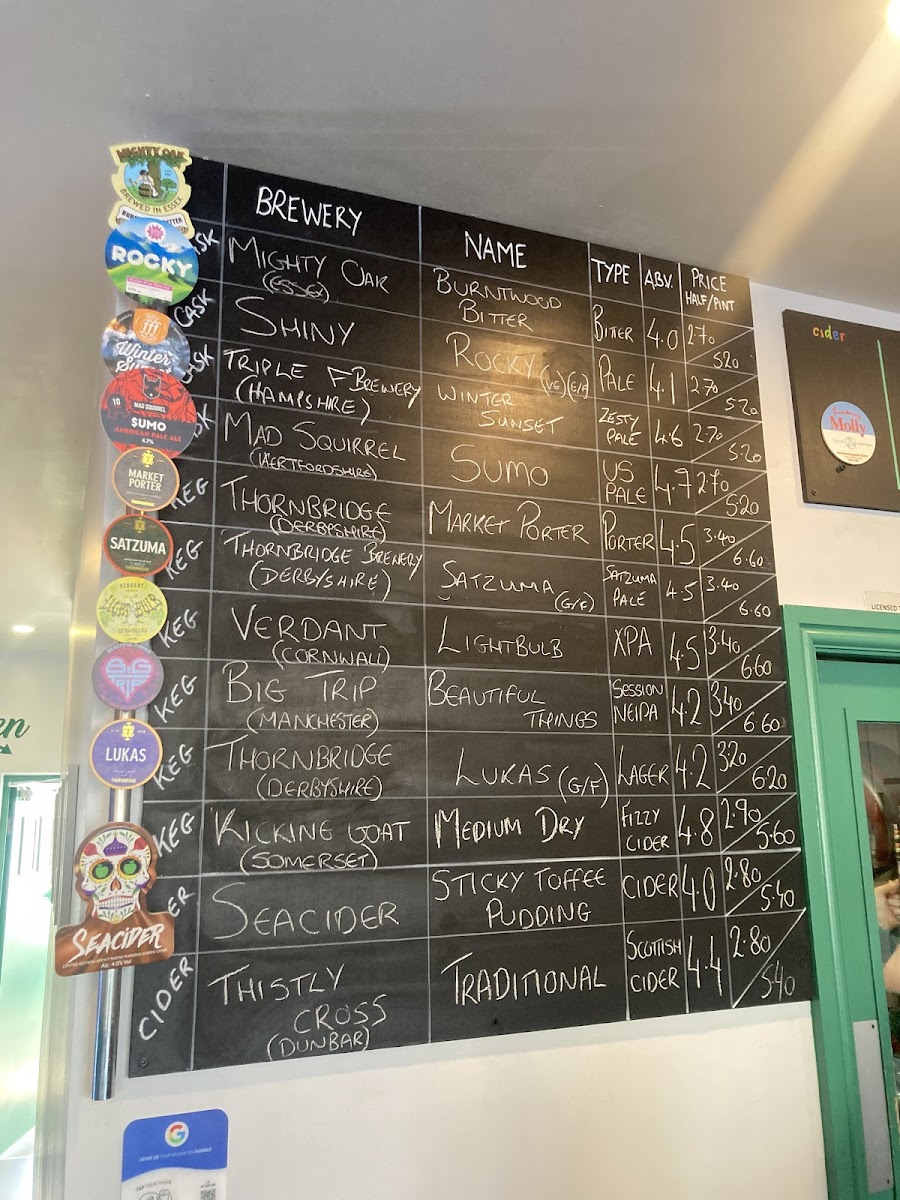 BREWERY NAME TYPE ABV. PRICE HALF/PINT
MIGHTY OAK (ESSEX) BURNTWOOD BITTER BITTER 4.0 270 520
CASK SHINY ROCKY (VE)(E/F) PALE 4.1 2.70 5.20
CASK TRIPLE F BREWERY (HAMPSHIRE) WINTER SUNSET ZESTY PALE 4.6 2.70 5.20
MAD SQUIRREL (HERTFORDSHIRE) SUMO US PALE 4.7 2.70 5.20
KEG THORNBRIDGE (DERBYSHIRE) MARKET PORTER PORTER 4.5 3.40 6.60
KEG THORNBRIDGE BREWERY (DERBYSHIRE) SATZUMA (G/F) SATZUMA PALE 4.5 3.40 6.60
KEG VERDANT (CORNWALL) LIGHTBULB XPA 4.5 3.40 6.60
KEG BIG TRIP (MANCHESTER) BEAUTIFUL THINGS SESSION NEIPA 4.2 3.40 6.60
KEG THORNBRIDGE (DERBYSHIRE) LUKAS (G/F) LAGER 4.2 320 620
KEG KICKING GOAT (SOMERSET) MEDIUM DRY FIZZY CIDER 4.8 2.90 5.60
SEACIDER STICKY TOFFEE PUDDING CIDER 4.0 2.80 5.40
CIDER THISTLY CROSS (DUNBAR) TRADITIONAL SCOTTISH CIDER 4.4 2.80 5.40
MIGHTY OAK
BREWED IN ESSEX
ROCKY
fff
Winter
MAD SQUIRREL
10
SUMO
AMERICAN PALE ALE
4.7%
MARKET
PORTER
SATZUMA
VERDANT
LIGHTBULB
EXTRA PALE ALE
BIG
TRIP
LUKAS
THORNBRIDGE
SEACIDER
Alc. 4.0% Vol
cider
Molly
LICENSED T
en
G